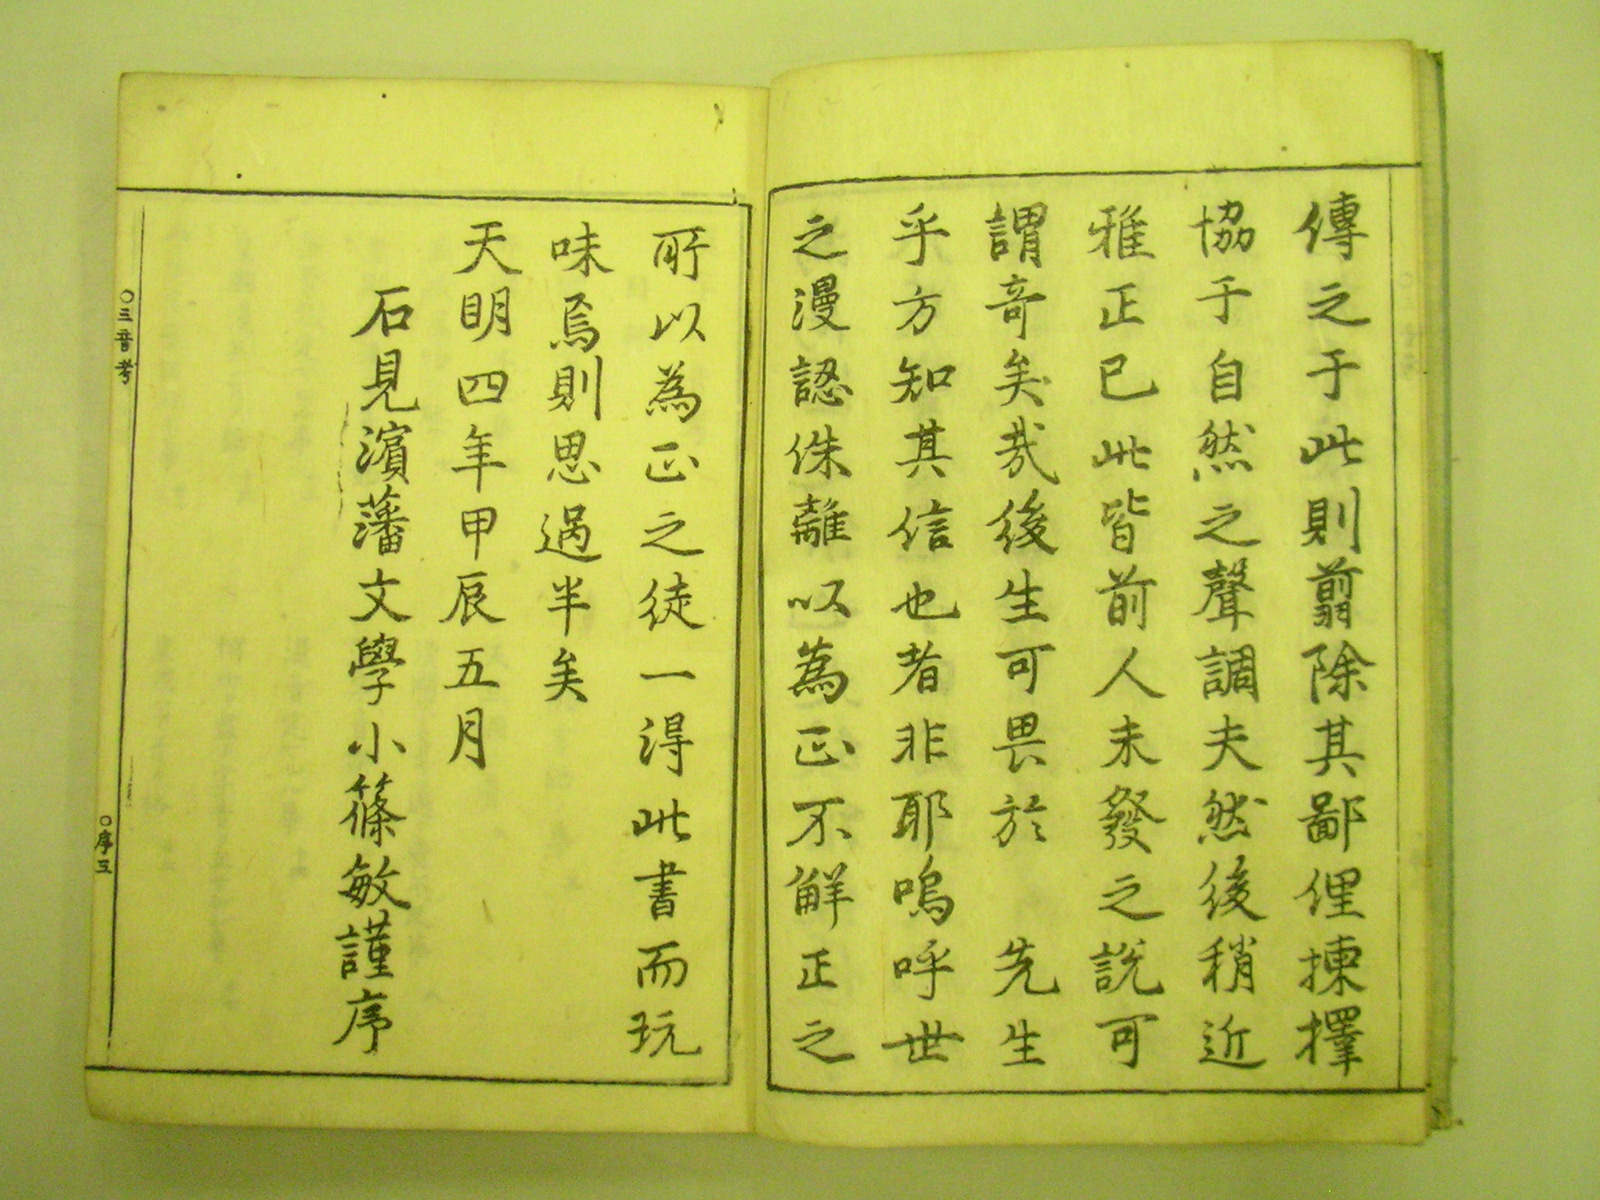 傳之于此則翦除其鄙俚揀擇
協于自然之聲調夫然後稍近
雅正已此皆前人未發之説可
謂奇矣哉後生可畏於　先生
乎方知其信也者非耶嗚呼世
之漫認侏離以為正不解正之
所以為正之徒一得此書而玩
味焉則思過半矣
天明四年甲辰五月
石見濱藩文學小篠敏謹序
○三音考
○序三